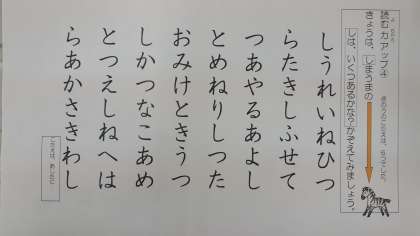 読む力アップ④
よ
ちから
きょうは、しまうまの
しは、いくつあるかな?かぞえてみましょう。
しうれいねひつ
らたきしふせて
つあやるあよし
とめねりしつた
おみけときうつ
しかつなこあめ
とつえしねへは
らあかさきわし